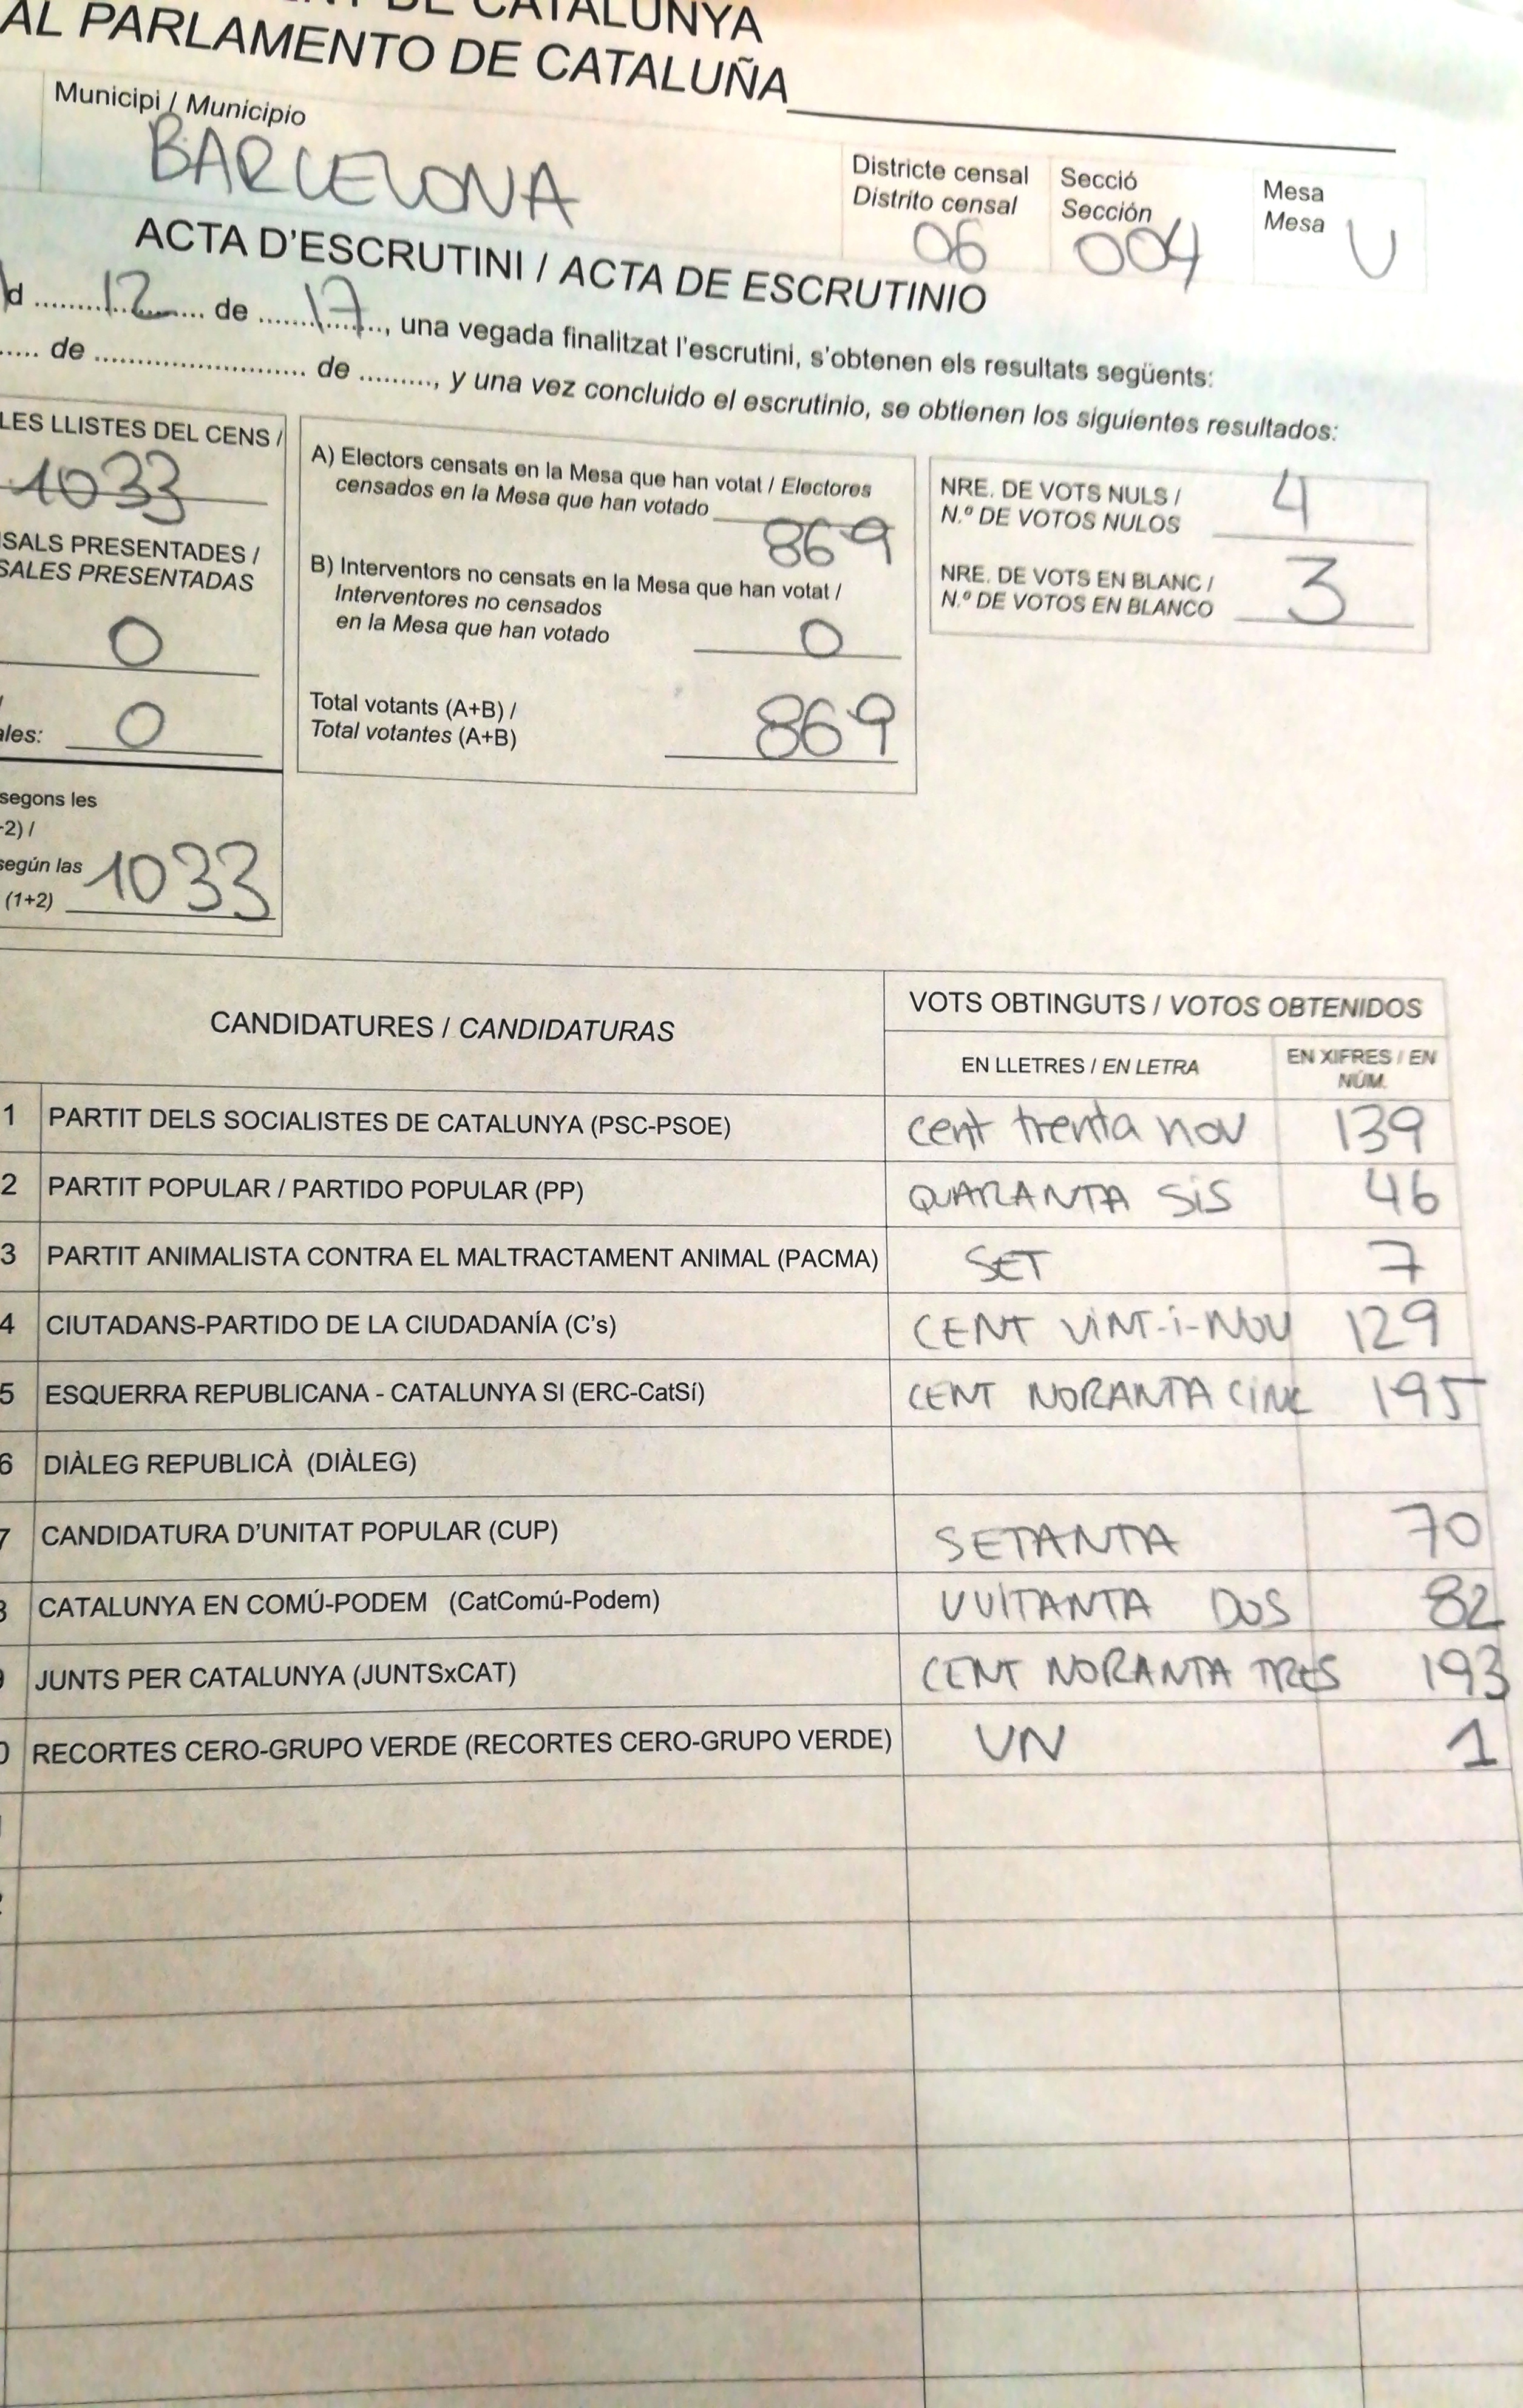 DE CATALUNYA
AL PARLAMENTO DE CATALUÑA
Municipi / Municipio
BARCELONA
Districte censal
Distrito censal
06
Secció
Sección
004
Mesa
Mesa
U
ACTA D'ESCRUTINI / ACTA DE ESCRUTINIO
d ........12........ de ........17........, una vegada finalitzat l'escrutini, s'obtenen els resultats següents:
..... de ........................ de ........., y una vez concluido el escrutinio, se obtienen los siguientes resultados:
LES LLISTES DEL CENS /
1033
SALS PRESENTADES /
SALES PRESENTADAS
0
ales: 0
segons les
-2) /
según las
(1+2) 1033
A) Electors censats en la Mesa que han votat / Electores
censados en la Mesa que han votado 869
B) Interventors no censats en la Mesa que han votat /
Interventores no censados
en la Mesa que han votado 0
Total votants (A+B) /
Total votantes (A+B) 869
NRE. DE VOTS NULS /
N.º DE VOTOS NULOS 4
NRE. DE VOTS EN BLANC /
N.º DE VOTOS EN BLANCO 3
CANDIDATURES / CANDIDATURAS
VOTS OBTINGUTS / VOTOS OBTENIDOS
EN LLETRES / EN LETRA
EN XIFRES / EN
NÚM.
1 PARTIT DELS SOCIALISTES DE CATALUNYA (PSC-PSOE) cent trenta nou 139
2 PARTIT POPULAR / PARTIDO POPULAR (PP) QUARANTA SIS 46
3 PARTIT ANIMALISTA CONTRA EL MALTRACTAMENT ANIMAL (PACMA) SET 7
4 CIUTADANS-PARTIDO DE LA CIUDADANÍA (C's) CENT VINT-I-NOU 129
5 ESQUERRA REPUBLICANA - CATALUNYA SI (ERC-CatSí) CENT NORANTA CINC 195
6 DIÀLEG REPUBLICÀ (DIÀLEG)
7 CANDIDATURA D'UNITAT POPULAR (CUP) SETANTA 70
CATALUNYA EN COMÚ-PODEM (CatComú-Podem) VUITANTA DOS 82
JUNTS PER CATALUNYA (JUNTSxCAT) CENT NORANTA TRES 193
RECORTES CERO-GRUPO VERDE (RECORTES CERO-GRUPO VERDE) UN 1